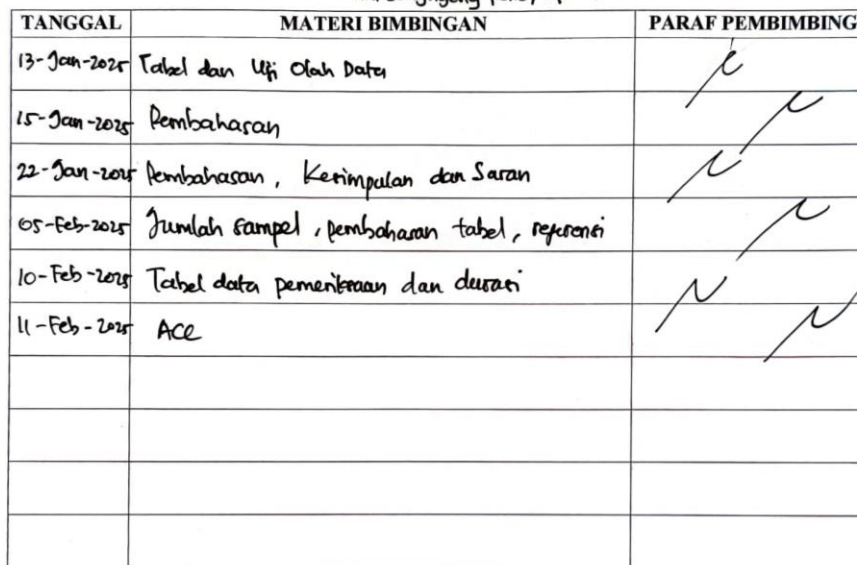 TANGGAL MATERI BIMBINGAN PARAF PEMBIMBING
13-Jan-2025 Tabel dan Uji Olah Data
15-Jan-2025 Pembahasan
22-Jan-2025 Pembahasan, Kesimpulan dan Saran
05-Feb-2025 Jumlah sampel, pembahasan tabel, referensi
10-Feb-2025 Tabel data pemeriksaan dan durasi
11-Feb-2025 ACC